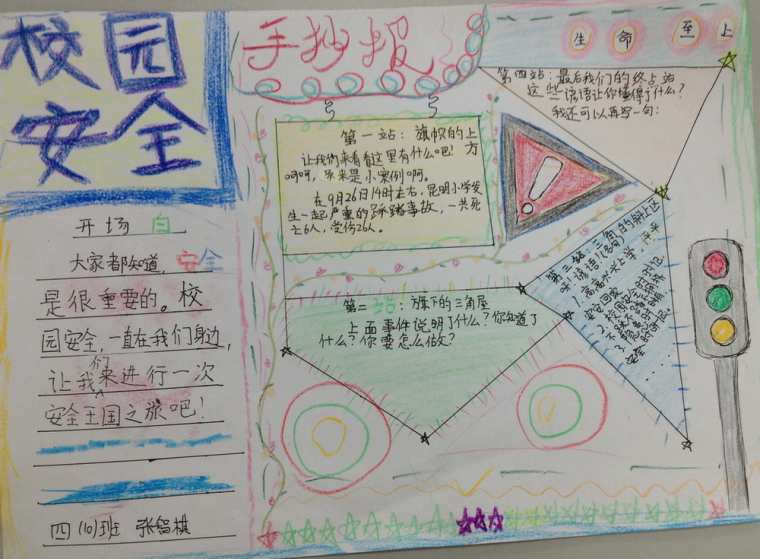 校园
安全
手抄报
生命至上
开场白
大家都知道,安全
是很重要的。校
园安全,一直在我们身边,
让我们来进行一次
安全王国之旅吧!
四(10)班 张
第一站:旗帜的上
方
让我们来看看这里有什么吧!
呵呵,原来是小案例啊。
在9月26日14时左右,昆明小学发
生一起严重的踩踏事故,一共死
亡6人,受伤26人。
第二站:旗下的三角座
上面事件说明了什么?你知道了
什么?你要怎么做?
第三站:三角的斜上区
1.高高兴兴上学,平平
安安回家。
安全
第四站:最后我们的终点站
这些谎语让你懂得了什么?
我还可以再写一句: